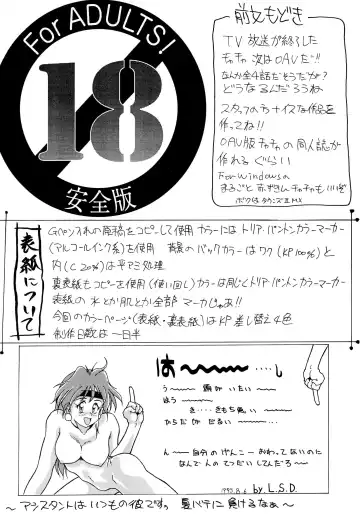 For ADULTS!
18
安全版
前文もどき
TV放送が終了した
チャチャ 次はOAVだ!!
なんか全4話だそうだが?
どうなるんだろうね
スタッフのナイスな作品を
作ってね!!
OAV版チャチャの同人誌が
作れるぐらい
For Windowsの
表紙について
Gペン入れの原稿をコピーして使用 カラーにはトリア・パントンカラーマーカー
(アルコールインク系)を使用 背景のバックカラーはワク(KP100%)と
内(C20%)は平アミ処理
裏表紙もコピーを使用(使い回し)カラーは同じくトリア・パントンカラーマーカー
表紙の水とか肌とか全部マーカじゃぁ!!
今回のカラーページ(表紙・裏表紙)はKP差し替え4色
制作日数は一日半
は〜〜〜 ....し
う〜〜 頭がいたい〜〜
ほう〜〜
き....きもち悪い〜〜
からだがだるい〜〜...
ん〜〜自分のげんこーおわってないのに
なんで人のてつだいしてんだろ〜
1995.8.6 by.L.S.D.
〜アシスタントはいつもの彼ですっ 夏バテに負けるなぁ〜